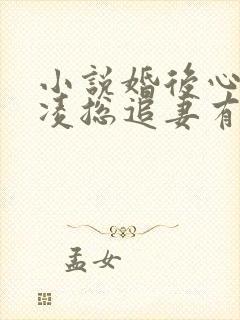 小說婚後心
凌總追妻有
孟女